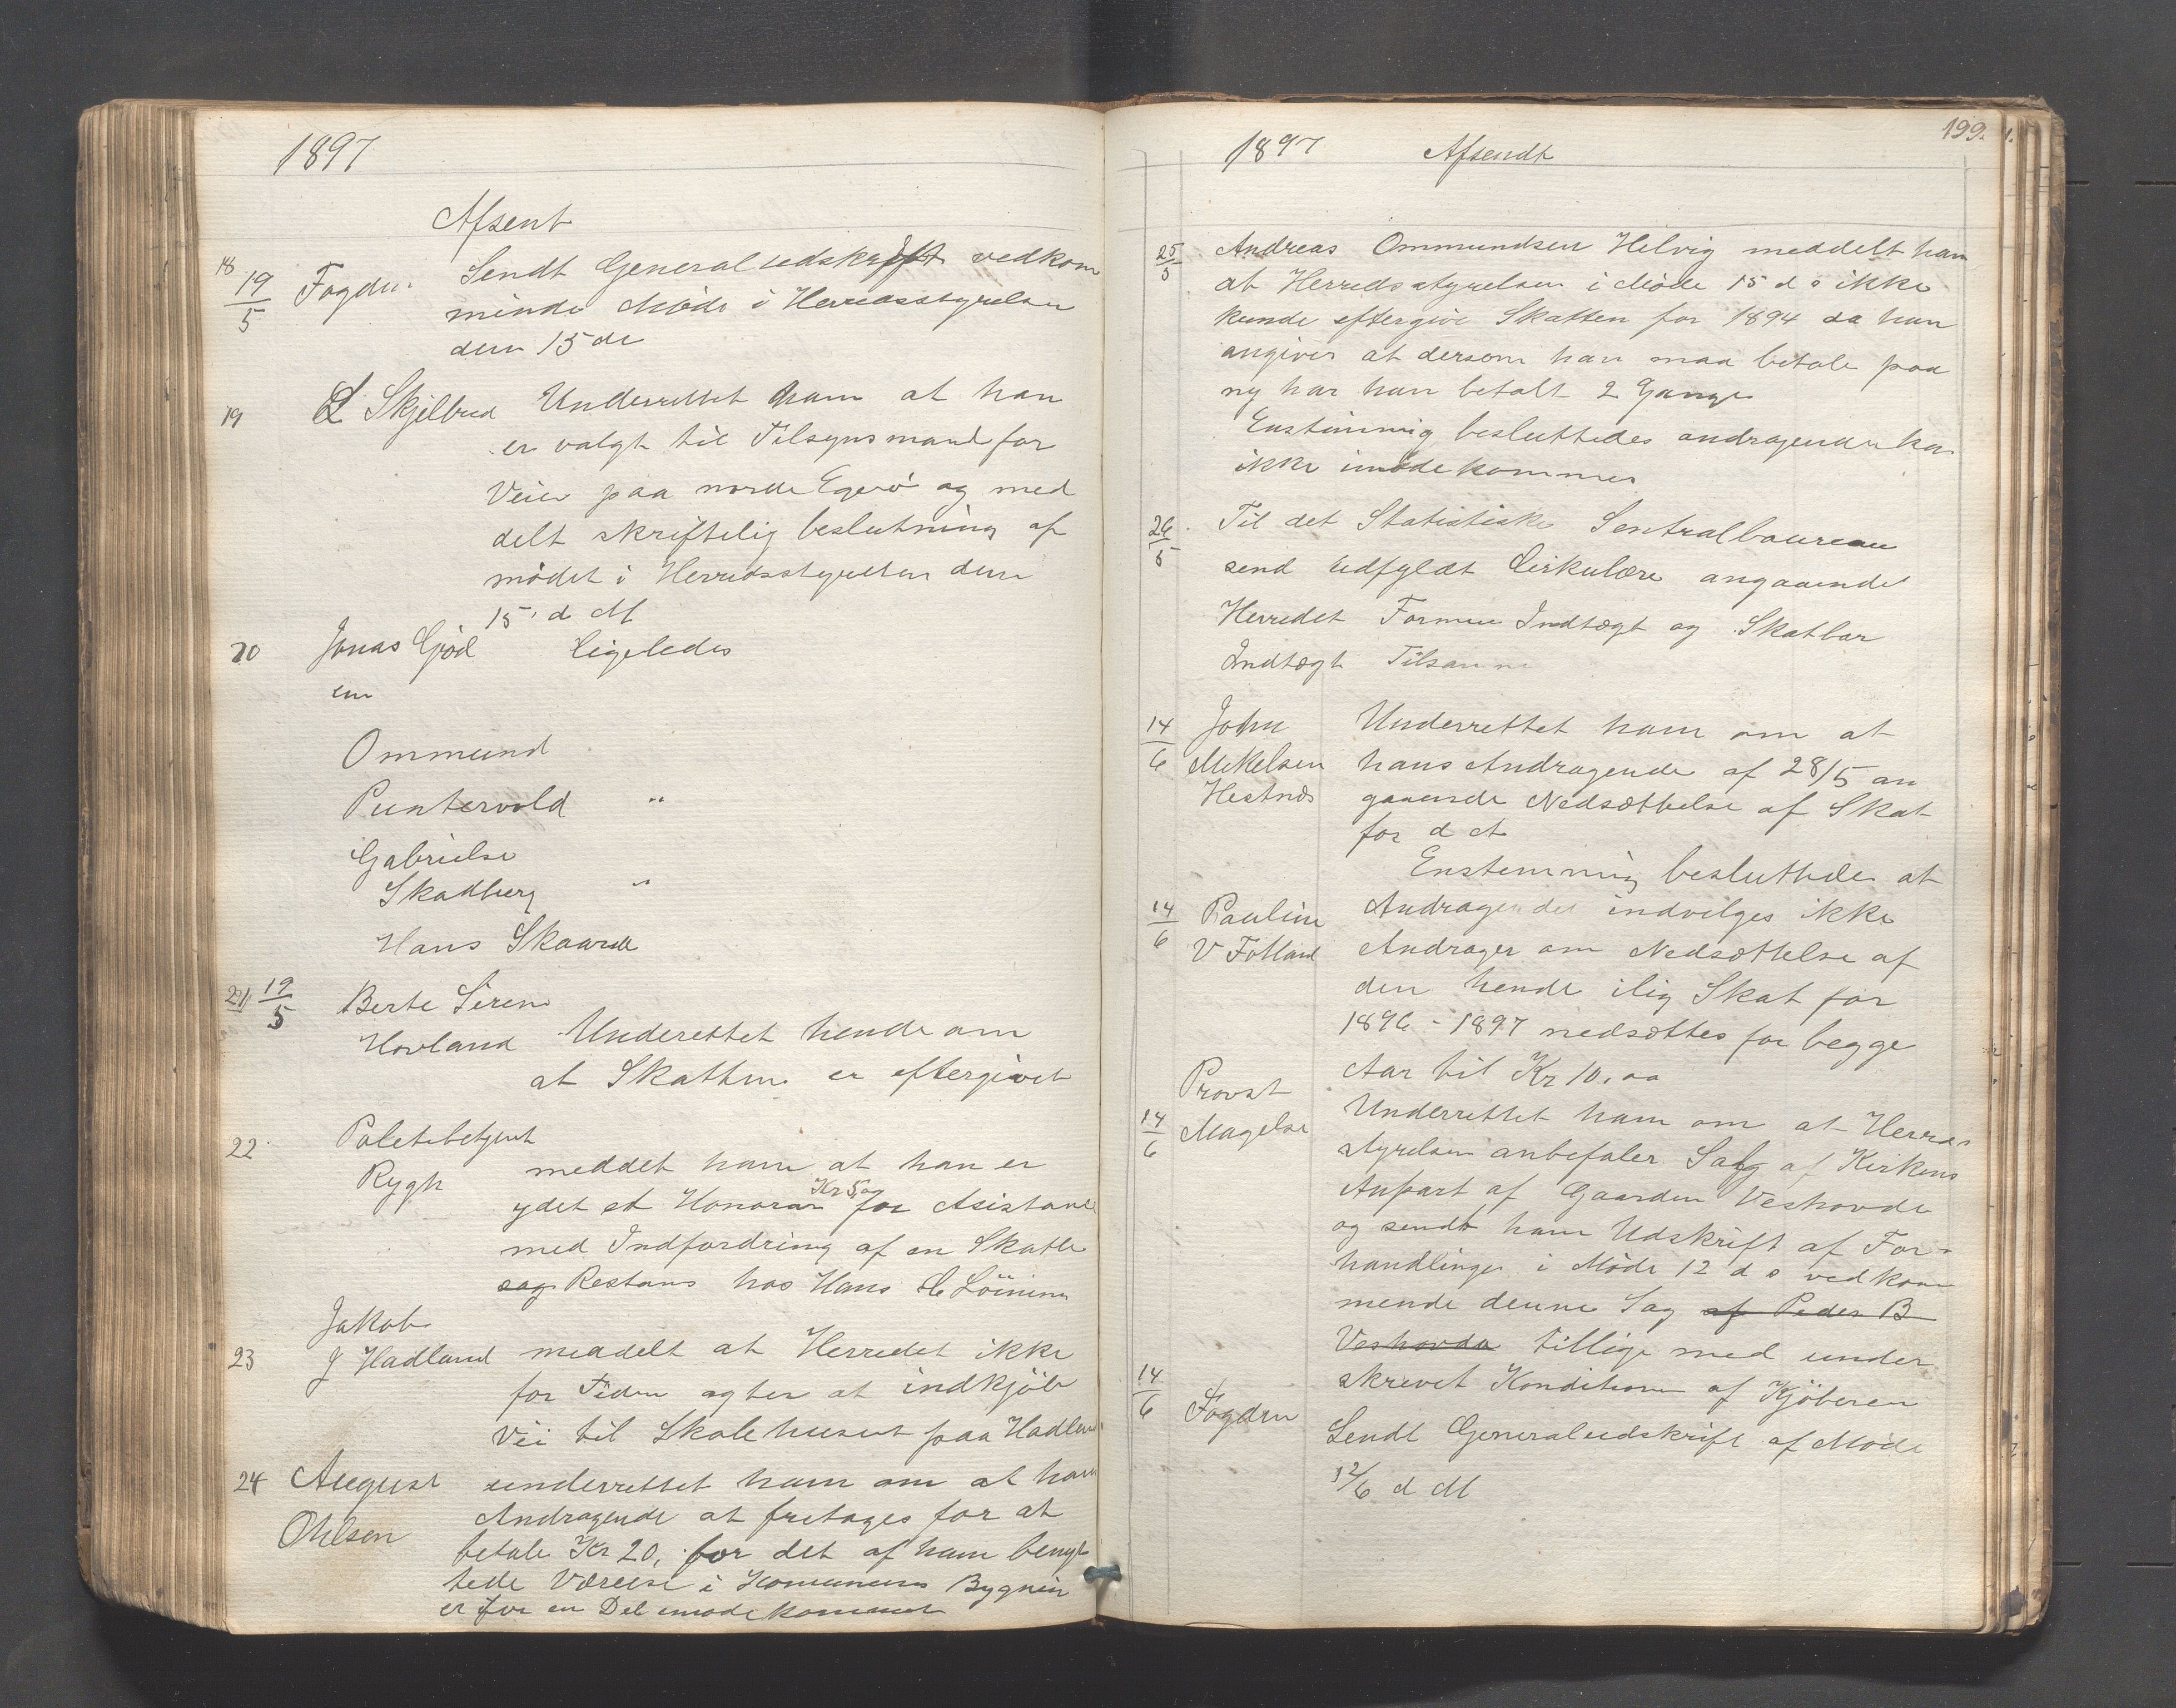 1897
Afsent
18 19/5 Fogden Sendt Generaludskrift vedkom
minde Møde i Herredsstyrelsen
den 15 de
19 L Skjelbred Underrettet ham at han
er valgt til Tilsynsmand for
Veie paa nordre Egerø og med
delt skriftelig beslutning af
mødet i Herredsstyrelsen den
15' d M
20 Jonas Gjød ligeledes
em
Ommund
Puntervold "
Gabrielse
Skadberg "
Hans Skaarde
21 19/5 Berte Siren
Hovland Underettet hende om
at Skatten er eftergivet
22 Poletibetjent
Rygh meddet ham at han er
Kr 5,00
ydet et Honorar for Asistance
med Indfordring af en Skatte
sag Restans hos Hans C Löining
Jakob
23 J Hadland meddelt at Herredet ikke
for Tiden agter at indkjöbe
Vei til Skolehuset paa Hadland
24 August underrettet ham om at hans
Ohlsen Andragende at fretages for at
betale Kr 20, for det af ham benyt
tede Værelse i Komunens Bygnin
er for en Del imødekommet
199.
1897 Afsendt
25/5 Andreas Ommundsen Helvig meddelt ham
at Herredsstyrelsen i Møde 15 d s ikke
kunde eftergive Skatten for 1894 da han
angiver at dersom han maa betale paa
ny har han betalt 2 Gange
Enstimmig besluttedes andragende kan
ikke imødekommes
26/5 Til det Statistiske Sentralbaureau
send udfyldt Cirkulære angaaende
Herredet Formue Indtægt og Skatbar
Indtægt Tilsamme
14/6 John Underrettet ham om at
Mikelsen hans Andragende af 28/5 an
Hestnæs gaaende Nedsættelse af Skat
for d A
Enstemming besluttedes at
14/6 Pauline Andragendet indvilges ikke
V Fotland Andrager om Nedsættelse af
den hende ilig Skat for
1896 - 1897 nedsættes for begge
Aar til Kr 10.00
Provst
14/6 Magelse Underrettet ham om at Herreds
styrelsen anbefaler Salg af Kirkens
Anpart af Gaarden Veshovde
og sendt ham Udskrift af For-
handlinger i Møde 12 d s vedkom
mende denne Sag af Peder B
Veshovda tillige med under
skrevet Konditioner af Kjöberen
14/6 Fogden Sendt Generaludskrift af Møde
12/6 d M